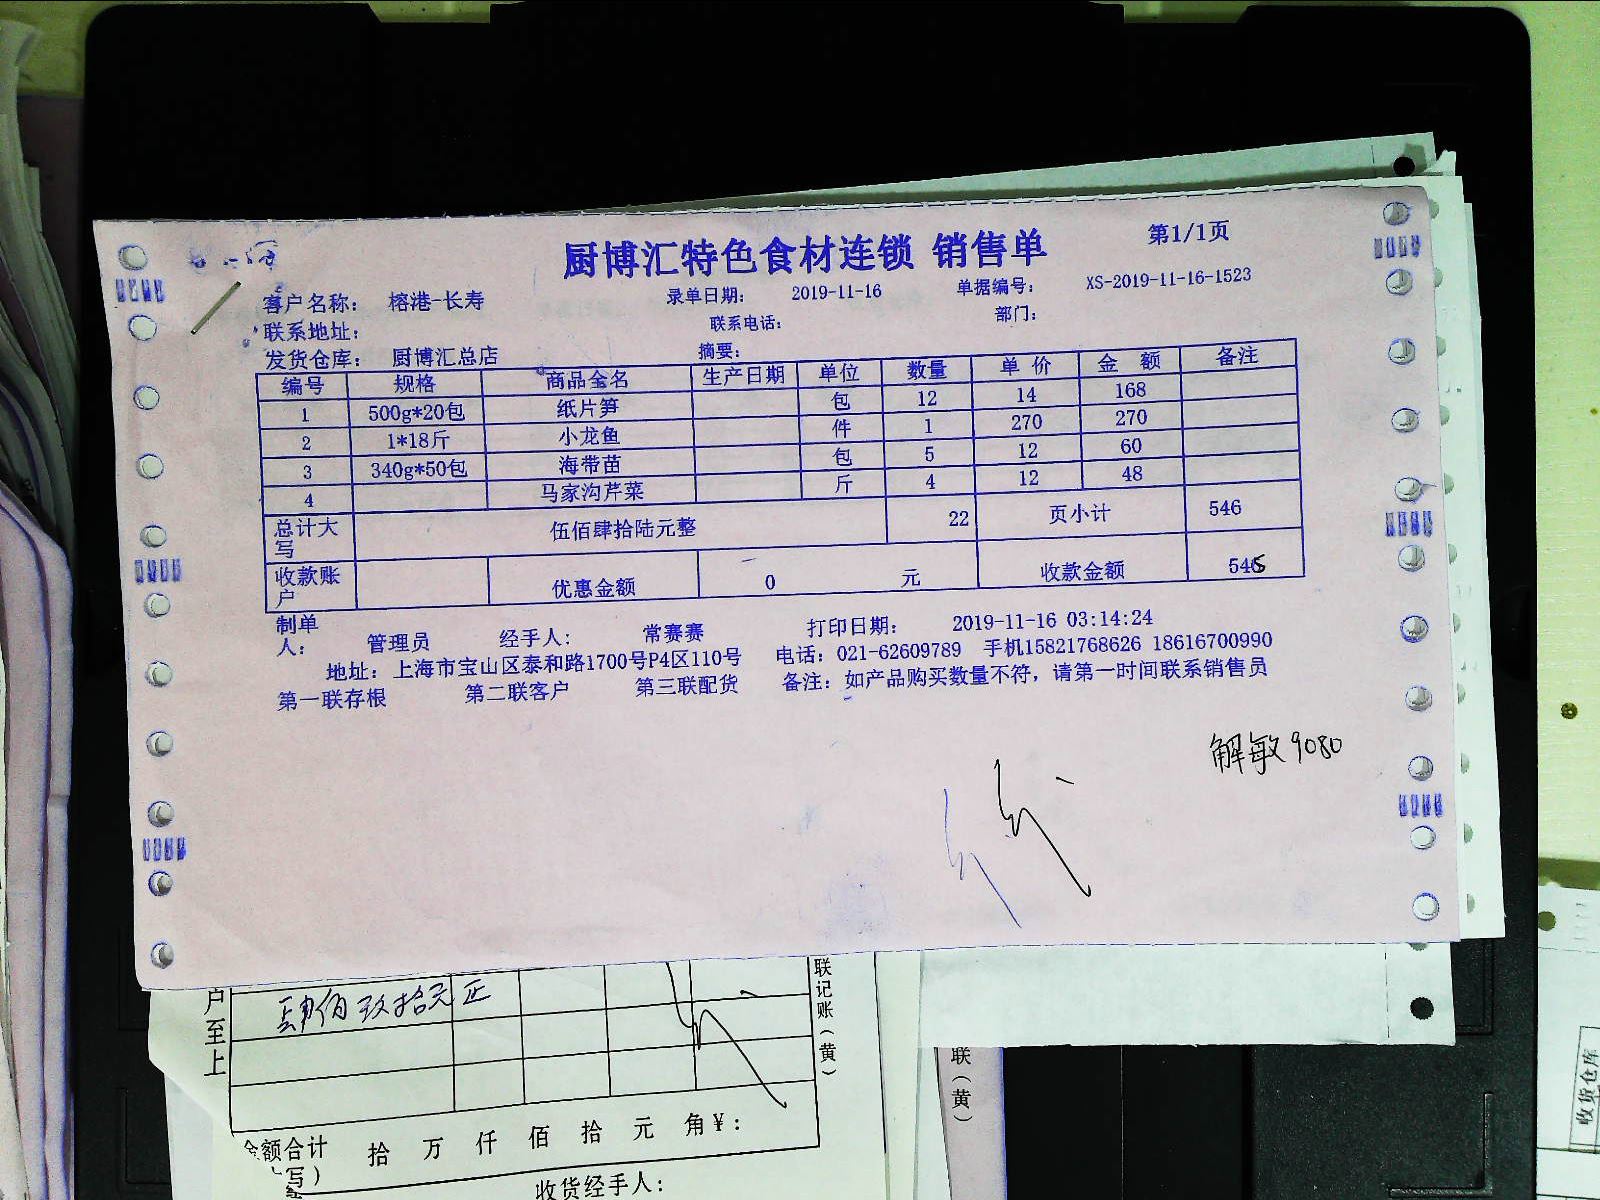 厨博汇特色食材连锁 销售单
第1/1页
客户名称： 榕港-长寿 录单日期： 2019-11-16 单据编号： XS-2019-11-16-1523
联系地址： 联系电话： 部门：
发货仓库： 厨博汇总店 摘要：
编号 规格 商品全名 生产日期 单位 数量 单 价 金 额 备注
1 500g*20包 纸片笋 包 12 14 168
2 1*18斤 小龙鱼 件 1 270 270
3 340g*50包 海带苗 包 5 12 60
4 马家沟芹菜 斤 4 12 48
总计大写 伍佰肆拾陆元整 22 页小计 546
收款账户 优惠金额 0 元 收款金额 545
制单人： 管理员 经手人： 常赛赛 打印日期： 2019-11-16 03:14:24
地址：上海市宝山区泰和路1700号P4区110号 电话：021-62609789 手机15821768626 18616700990
第一联存根 第二联客户 第三联配货 备注：如产品购买数量不符，请第一时间联系销售员
解敏9080
户至上
肆佰玖拾元正
联记账（黄）
联（黄）
金额合计 拾 万 仟 佰 拾 元 角¥：
写）
收货经手人：
收货仓库